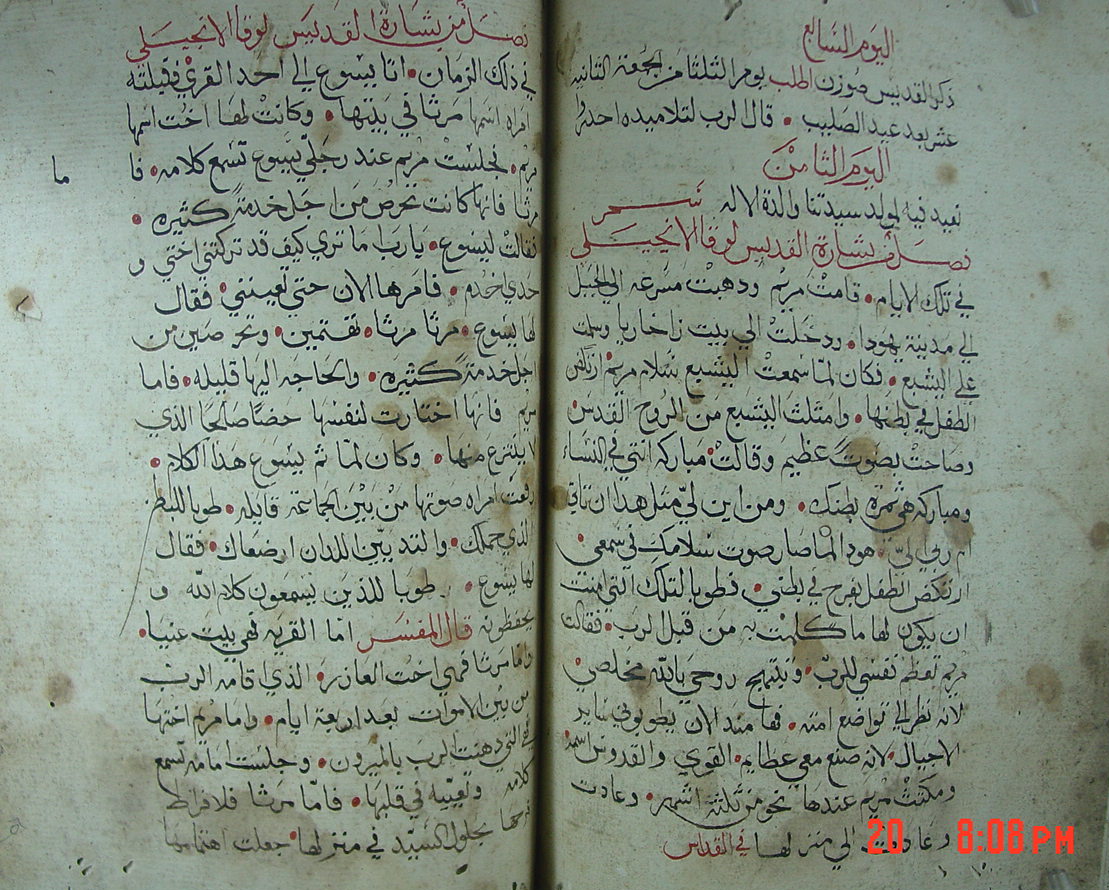 اليوم السابع
ذكر القديس صوزن الطلب يوم الثلثا من الجمعة الثانيه
عشر بعد عيد الصليب • قال الرب لتلاميذه احذروا
اليوم الثامن
نعيد فيه لمولد سيدتنا والدة الاله سحر
فصل من بشارة القديس لوقا الانجيلي
في تلك الايام • قامت مريم ودهبت مسرعه الي الجبل
الي مدينة يهودا • ودخلت الي بيت زاخاريا وسلمت
علي اليشبع • فكان لما سمعت اليشبع سلام مريم ارتكض
الطفل في بطنها • وامتلت اليشبع من الروح القدس
وصاحت بصوت عظيم وقالت • مباركه انتي في النساء
ومباركه هي ثمرة بطنك • ومن اين لي مثل هدا ان تاتي
ام ربي الي • هودا لما صار صوت سلامك في سمعي
ارتكض الطفل بفرح في بطني • فطوبا لتلك التي امنت
ان يكون لها ما كلمت به من قبل الرب • فقالت
مريم تعظم نفسي للرب • وتبتهج روحي بالله مخلصي
لانه نظر الي تواضع امته • فها مند الان يطوبوني ساير
الاجيال • لانه صنع معي عظايم • القوي والقدوس اسمه
ومكثت مريم عندها نحو من ثلثة اشهر • وعادت
وعادت الي منزلها في القداس
فصل من بشارة القديس لوقا الانجيلي
في ذاك الزمان • اتا يسوع الي احد القري فقبلته
امراه اسمها مرثا في بيتها • وكانت لها اخت اسمها
مريم • فجلست مريم عند رجلي يسوع تسمع كلامه • فا ما
مرثا فانها كانت تحرص من اجل خدمة كثيره •
فقالت ليسوع • يا رب اما تري كيف قد تركتني اختي و
حدي اخدم • فامرها الان حتي تعينني • فقال
لها يسوع • مرثا مرثا • تهتمين • وتحرصين من
اجل خدمة كثيره • والحاجه اليها قليله • فاما
مريم فانها اختارت لنفسها حضا صالحا الذي
لا ينتزع منها • وكان لما تم يسوع هذا الكلام •
رفعت امراه صوتها من بين الجماعة قايله • طوبا للبطن
الذي حملك • والتديين اللدان ارضعاك • فقال
لها يسوع • طوبا للذين يسمعون كلام الله و
يحفظونه قال المفسر اما القريه فهي بيت عنيا •
واما مرثا فهي اخت العازر • الذي اقامه الرب
من بين الاموات بعد اربعة ايام • واما مريم اختها
فهي التي دهنت الرب بالميرون • وجلست امامه تسمع
كلامه وتعيه في قلبها • فاما مرثا فلافراط
فرحها بحلول السيد في منزلها • جعلت اهتمامها
20 8:08 PM